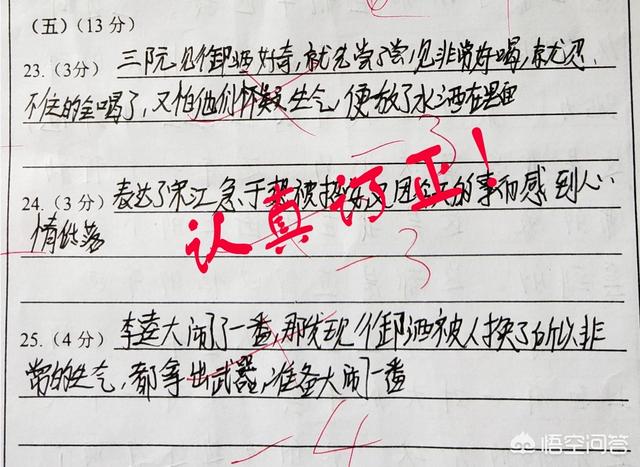 （五）（13分）
23.（3分）三阮见御酒好奇，就先尝了尝，见非常好喝，就忍
不住的全喝了，又怕他们怀疑生气，便放了水酒在里面
-3
24.（3分）表达了宋江急于想被招安又因的事而感到心
情低落
认真订正！
-3
25.（4分）李逵大闹了一番，那发现御酒被人换了所以非
常的生气，都拿出武器，准备大闹一番
-4
悟空问答